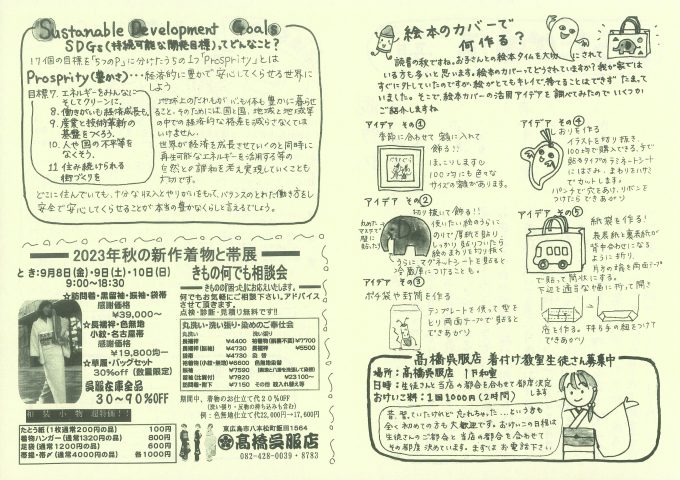 Sustanable Development Goals
SDGs(持続可能な開発目標)ってどんなこと?
17個の目標を「5つのP」に分けたうちの1つ「Prosprity」とは
Prosprity(豊かさ)・・・経済的に豊かで安心してくらせる世界に
しよう
目標7. エネルギーをみんなに
そしてクリーンに。
8. 働きがいも経済成長も。
9. 産業と技術革新の
基盤をつくろう。
10. 人や国の不平等を
なくそう。
11 住み続けられる
街づくりを
地球上のだれもが、心も体も豊かに暮らせ
ること。そのためには、国と国、地域と地域等
の中での経済的な格差を減らさなくては
いけません。
世界が経済を成長させていくのと同時に
再生可能なエネルギーを活用する等の
自然との調和を考え実現していくことも
大切です。
どこに住んでいても、十分な収入とやりがいをもって、バランスのとれた働き方をし
安全で安心してくらせることが本当の豊かなくらしと言えるでしょう。
2023年秋の新作着物と帯展
とき:9月8日(金)・9日(土)・10日(日)
9:00〜18:30
☆訪問着・黒留袖・振袖・袋帯
感謝価格
¥39,000〜
☆長襦袢・色無地
小紋・名古屋帯
感謝価格
¥19,800均一
☆草履・バッグセット
30%off (数量限定)
呉服在庫全品
30〜90%OFF
和装小物 超特価!!
たとう紙(1枚通常200円の品) 100円
着物ハンガー(通常1320円の品) 800円
足袋(通常1200円の品) 600円
帯揚・帯〆(通常4000円の品) 各1000円
きもの何でも相談会
きものの『困った』にお応えいたします。
何でもお気軽にご相談下さい。アドバイス
させて頂きます。
点検・診断・見積り無料です!!
丸洗い・洗い張り・染めのご奉仕会
丸洗い 洗い張り
長襦袢 ¥4400 着物・襦袢(胴裏不要)¥7700
長襦袢(振袖) ¥4730 長襦袢 ¥5500
袋帯 ¥4730 染替
着物(小紋・無地)¥6600 色無地染替
振袖 ¥7590
留袖(比翼付) ¥7920 ¥23100〜
訪問着・附下 ¥7150 その他 紋入れ替え等
期間中、着物のお仕立て代20%OFF
(洗い張り・反物の持ち込みも含む)
例:色無地仕立て代22,000円→17,600円
東広島市八本松町飯田1564
髙橋呉服店
082-428-0039・8783
絵本のカバーで
何作る?
読書の秋ですね。お子さんとの絵本タイムを大切にされて
いる方も多いと思います。絵本のカバーってどうされていますか?我が家では
すぐに外していたのですが、絵がとてもキレイで、捨てることはできずたまって
いました。そこで、絵本カバーの活用アイデアを調べてみたのでいくつか
ご紹介しますね
アイデア その①
季節に合わせて額に入れて
飾る!!
ほっこりします♡
100均にも色々な
サイズの額があります。
アイデア その②
丸めたマステで壁に貼った!
切り抜いて飾る!!
使いたい絵のうらに
のりで厚紙を貼り、
しっかり貼りついたら
絵のまわりを切り抜く
うらにマグネットシートを貼ると
冷蔵庫につけることも。
アイデア その③
ポチ袋や封筒を作る
テンプレートを使って型を
とり両面テープで貼ると
できあがり
アイデア その④
しおりを作る
イラストを切り抜き、
100均で購入できる、手で
貼るタイプのラミネートシート
にはさみ、まわりをハサミ
でカットします。
パンチで穴をあけ、リボンを
つけたらできあがり
アイデア その⑤
紙袋を作る!
表表紙と裏表紙が
背中合わせになる
ように折り、
片方の端を両面テープ
で貼って筒状にする。
下辺を適当な幅に折って開き
底を作る。持ち手の紐をつけて
できあがり
髙橋呉服店 着付け教室生徒さん募集中
場所:髙橋呉服店 1F和室
日時:生徒さんと当店の都合を合わせて都度決定
します
おけいこ料:1回1000円(2時間)
昔、習っていたけれど忘れちゃった...という方も
全く初めての方も大歓迎です。おけいこの日程は
生徒さんのご都合と当店の都合を合わせて
その都度決めています。まずはお電話下さい。